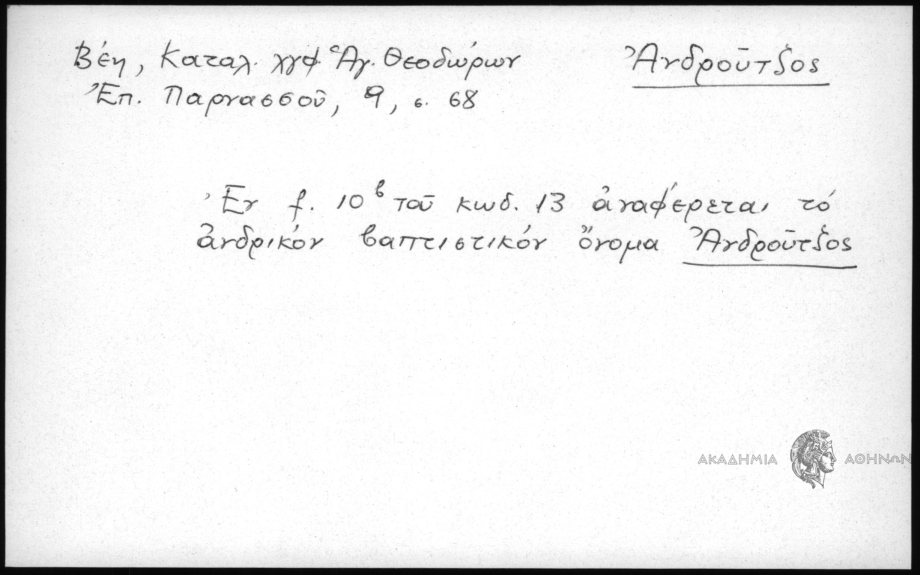 Βέη, Καταλ. χγφ. Ἁγ. Θεοδώρων
Ἀνδροῦτζος
Ἐπ. Παρνασσοῦ, 9, σ. 68
Ἐν f. 10β τοῦ κωδ. 13 ἀναφέρεται τό
ἀνδρικόν βαπτιστικόν ὄνομα Ἀνδροῦτζος
ΑΚΑΔΗΜΙΑ ΑΘΗΝΩΝ